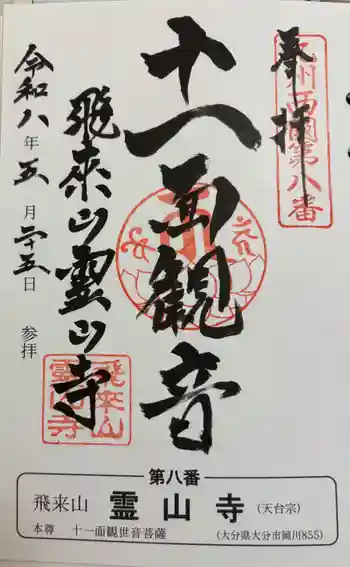 奉拝
九州西國第八番
十一面観音
飛来山霊山寺
飛来山
霊山寺
令和八年五月二十五日 参拝
第八番
飛来山 霊山寺 (天台宗)
本尊 十一面観世音菩薩 (大分県大分市岡川855)